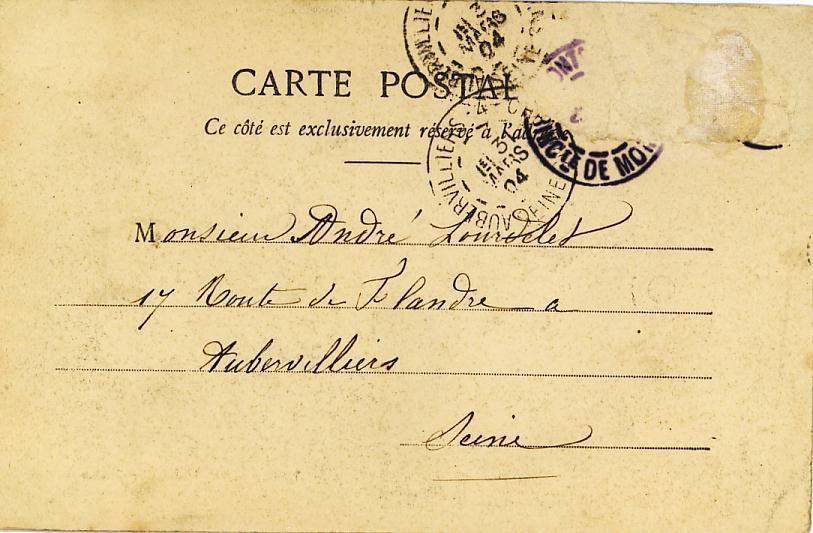 CARTE POSTAL
Ce côté est exclusivement réservé à l'adr
AUBERVILLIERS SEINE
MARS
04
DE MO
Monsieur André Lourdelet
17 Route de Flandre a
Aubervilliers
Seine